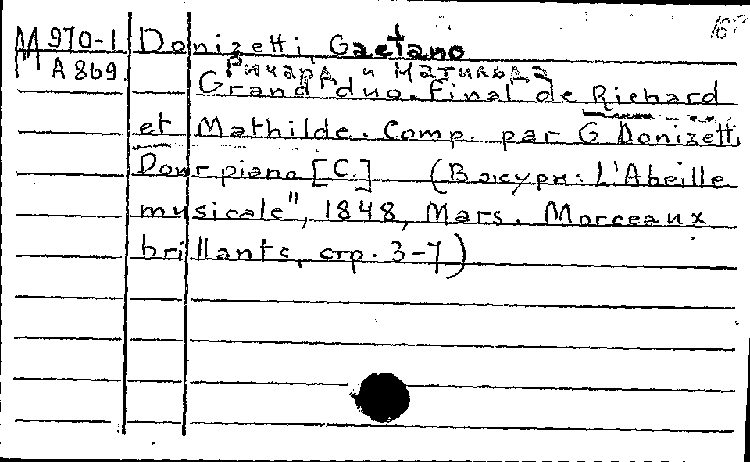 М 970-1 Donizetti, Gaetano
А 869. Ричард и Матильда
Grand duo final de Richard
et Mathilde. Comp. par G Donizetti
Pour piano [C.] (В журн: L'Abeille
musicale", 1848, Mars. Morceaux
brillants, стр. 3-7)